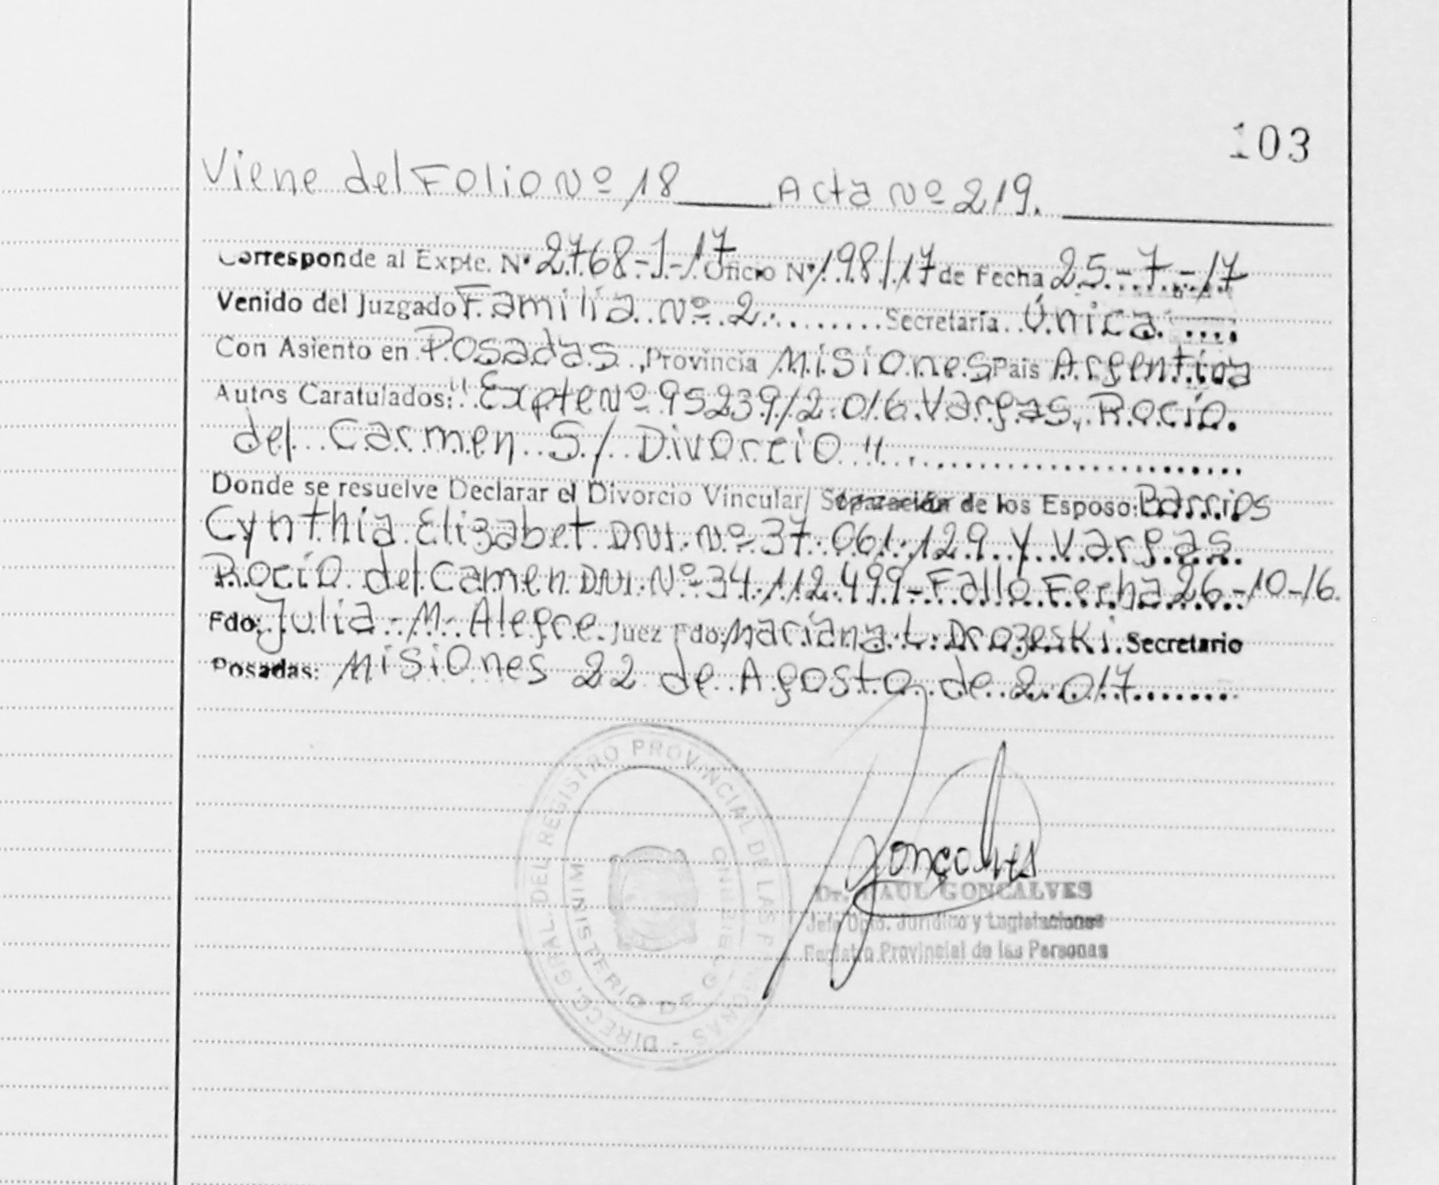 103
Viene del Folio Nº 18 ___ Acta Nº 219. ___
Corresponde al Expte. Nº 2768-J-17 Oficio Nº 198/17 de Fecha 25-7-17
Venido del Juzgado Familia Nº 2. Secretaría Única.
Con Asiento en Posadas, Provincia Misiones País Argentina
Autos Caratulados: "Expte Nº 95239/2016 Vargas, Rocío.
del Carmen S/ Divorcio".
Donde se resuelve Declarar el Divorcio Vincular/ Separación de los Esposo: Barrios
Cynthia Elizabet DNI. Nº 37.061.129 Y Vargas.
Rocío del Camen DNI. Nº 34.112.499-Fallo Fecha 26-10-16.
Fdo: Julia M. Alegre. Juez Fdo: Mariana L. Drozeski. Secretario
Posadas: Misiones 22 de Agosto de 2017
DIRECC. GRAL. DEL REGISTRO PROVINCIAL DE LAS PERSONAS -
MINISTERIO DE GOBIERNO
Gonçalves
Dr. RAUL GONCALVES
Jefe Dpto. Jurídico y Legislaciones
Registro Provincial de las Personas